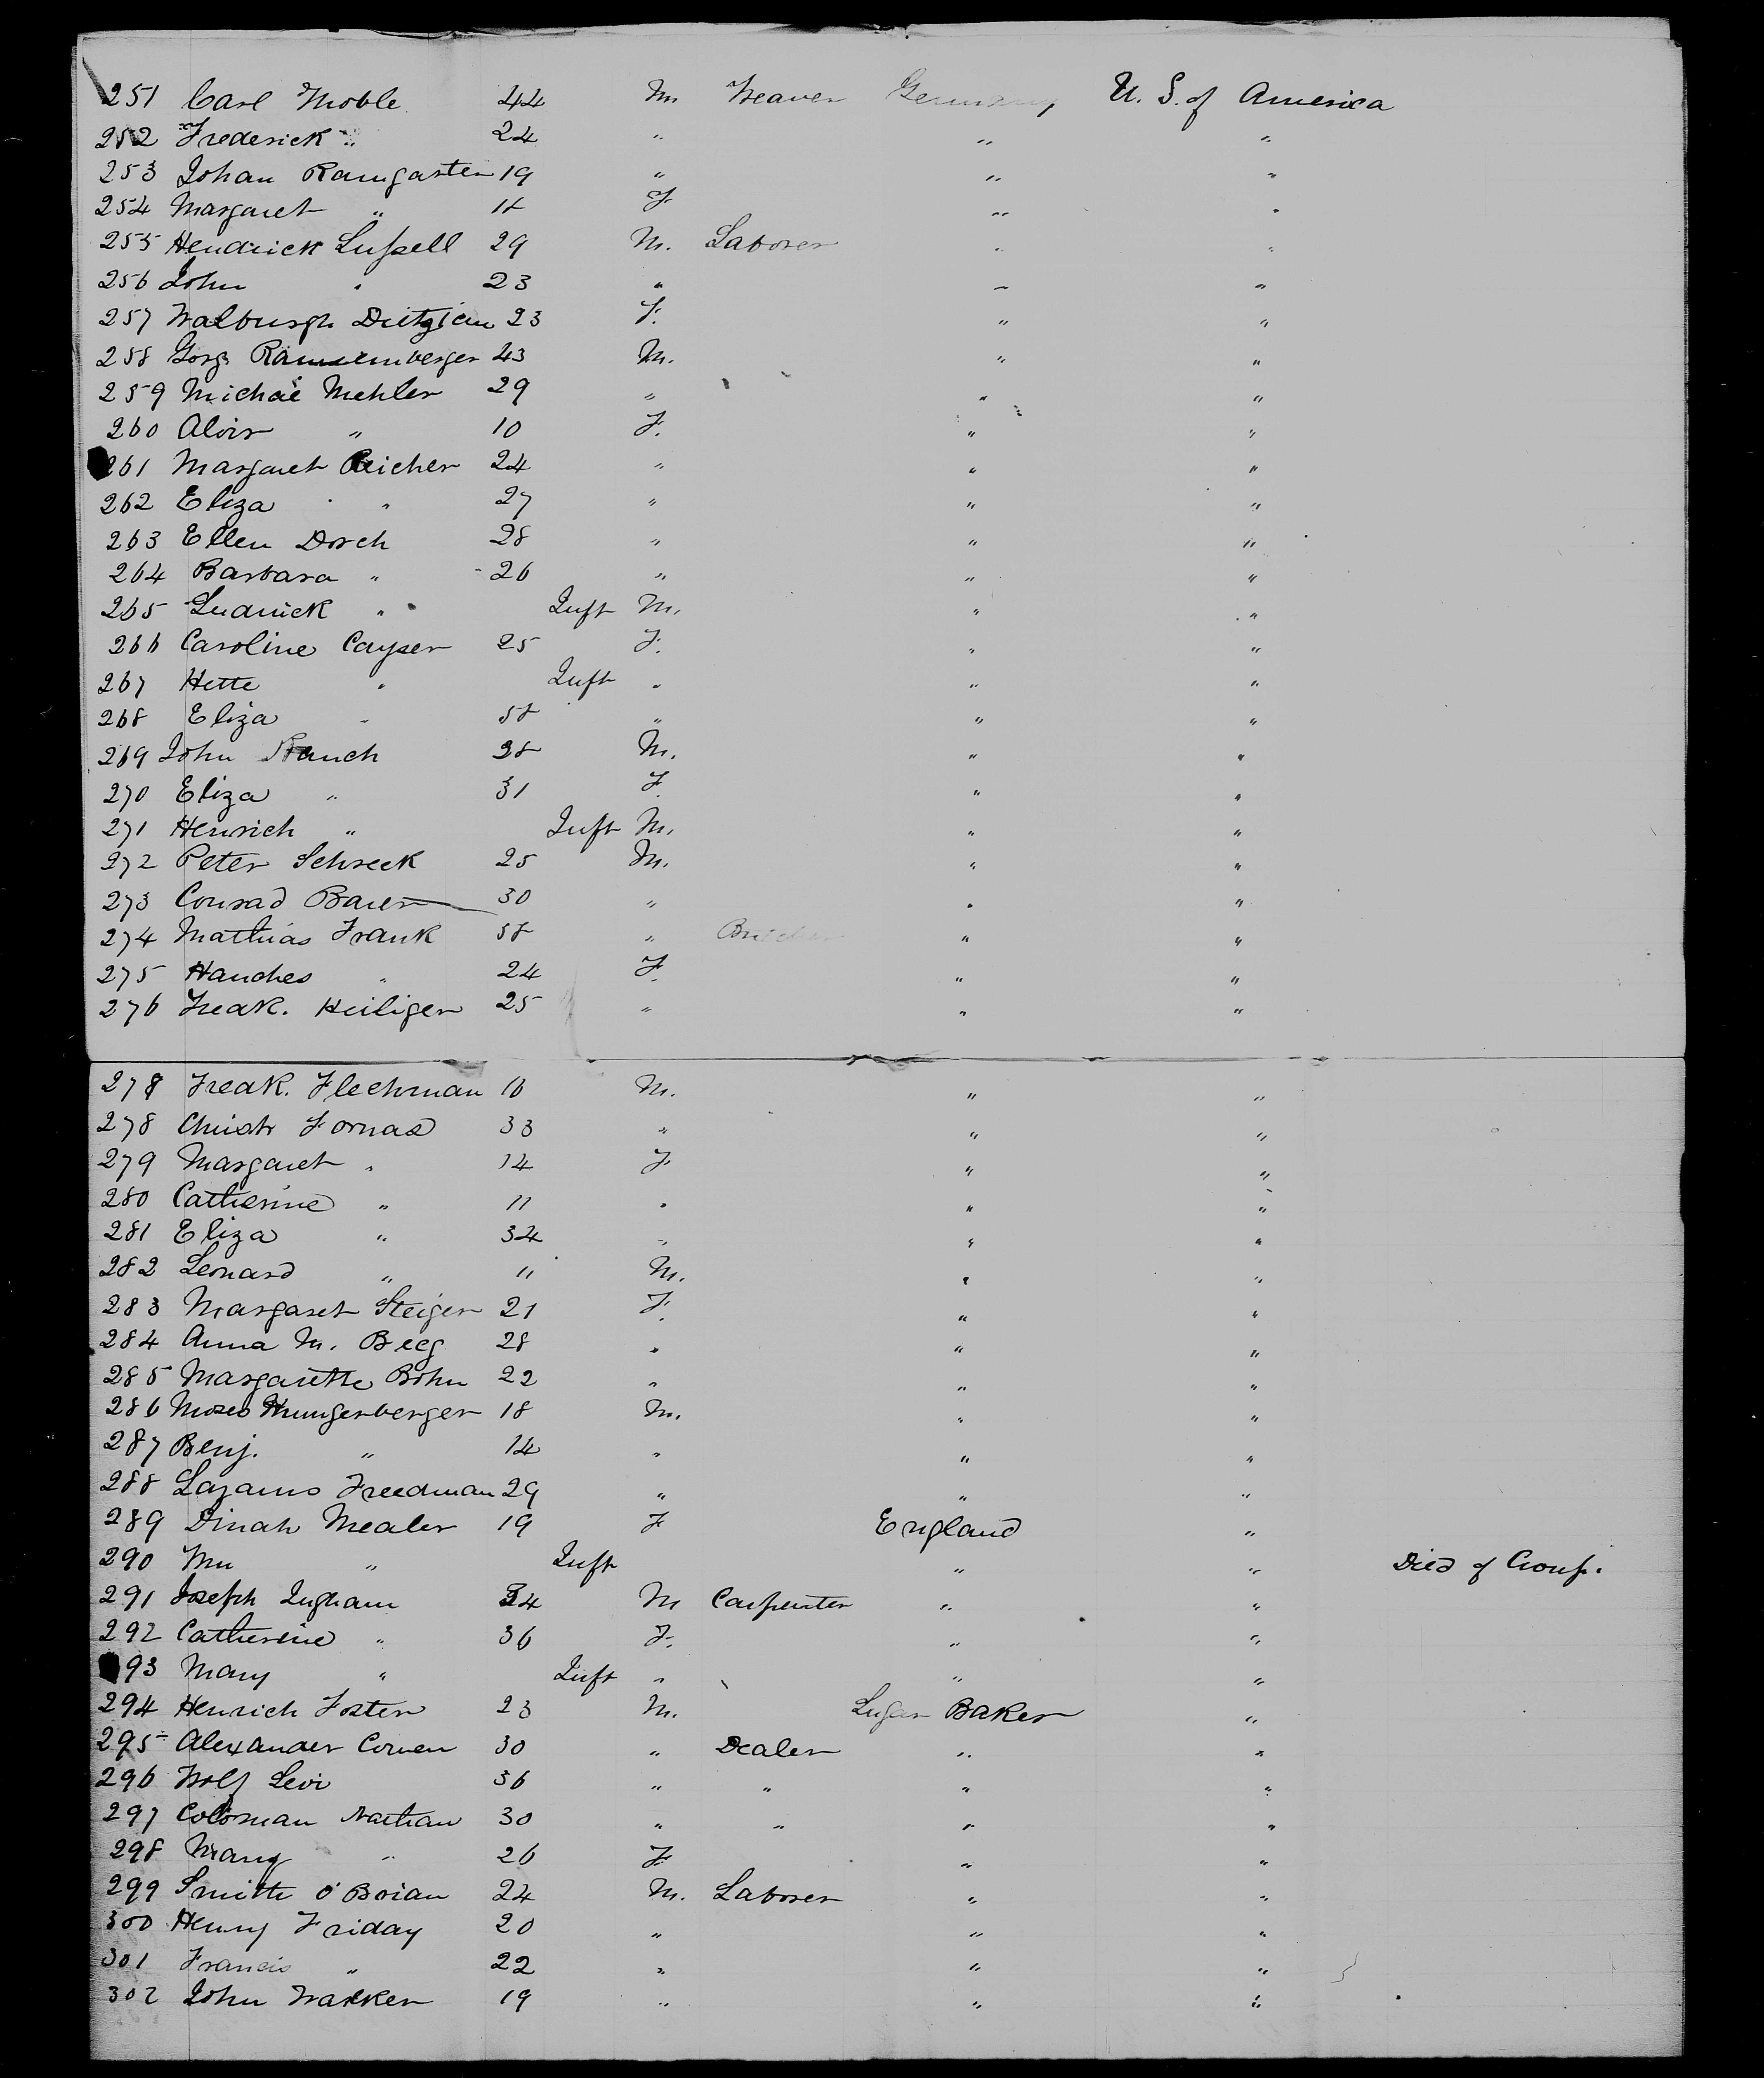 251 Carl Noble 44 M. Weaver Germany U. S. of America
252 Frederick " 24 " " "
253 Johan Ramgarten 19 " " "
254 Margaret " F " "
255 Hendrick Lussell 29 M. Laborer " "
256 John " 23 " " "
257 Walburgh Dietzlein 23 F. " "
258 Gorg Rammemberger 43 M. " "
259 Michael Mehler 29 " " "
260 Alois " 10 F. " "
261 Margaret Reicher 24 " " "
262 Eliza " 27 " " "
263 Ellen Dorch 28 " " "
264 Barbara " 26 " " "
265 Ludwick " Inft M. " "
266 Caroline Cayser 25 F. " "
267 Hette " Inft " " "
268 Eliza " 58 " " "
269 John Rauch 28 M. " "
270 Eliza " 31 F. " "
271 Henrich " Inft M. " "
272 Peter Schreck 25 M. " "
273 Conrad Bauer 30 " " "
274 Mathias Frank 58 " Butcher " "
275 Hanches " 24 F. " "
276 Freak. Heiliger 25 " " "
278 Freak. Flechman 16 M. " "
278 Christr Fornas 33 " " "
279 Margaret " 14 F " "
280 Catherine " 11 " " "
281 Eliza " 34 " " "
282 Leonard " 11 M. " "
283 Margaret Steiger 21 F. " "
284 Anna M. Beeg 28 " " "
285 Margarette Bohn 22 " " "
286 Moses Hungerberger 18 M. " "
287 Benj. " 14 " " "
288 Lazarus Freedman 29 " " "
289 Dinah Mealer 19 F England "
290 Wm " Inft " " Died of Croup.
291 Joseph Ingham 34 M Carpenter " "
292 Catherine " 36 F. " "
293 Mary " Inft " " "
294 Henrich Foster 23 M. Sugar Baker "
295 Alexander Cowen 30 " Dealer " "
296 Wolf Levi 36 " " " "
297 Coloman Nathan 30 " " " "
298 Mary " 26 F " "
299 Smith O'Brian 24 M. Laborer " "
300 Henry Friday 20 " " "
301 Francis " 22 " " "
302 John Walker 19 " " "